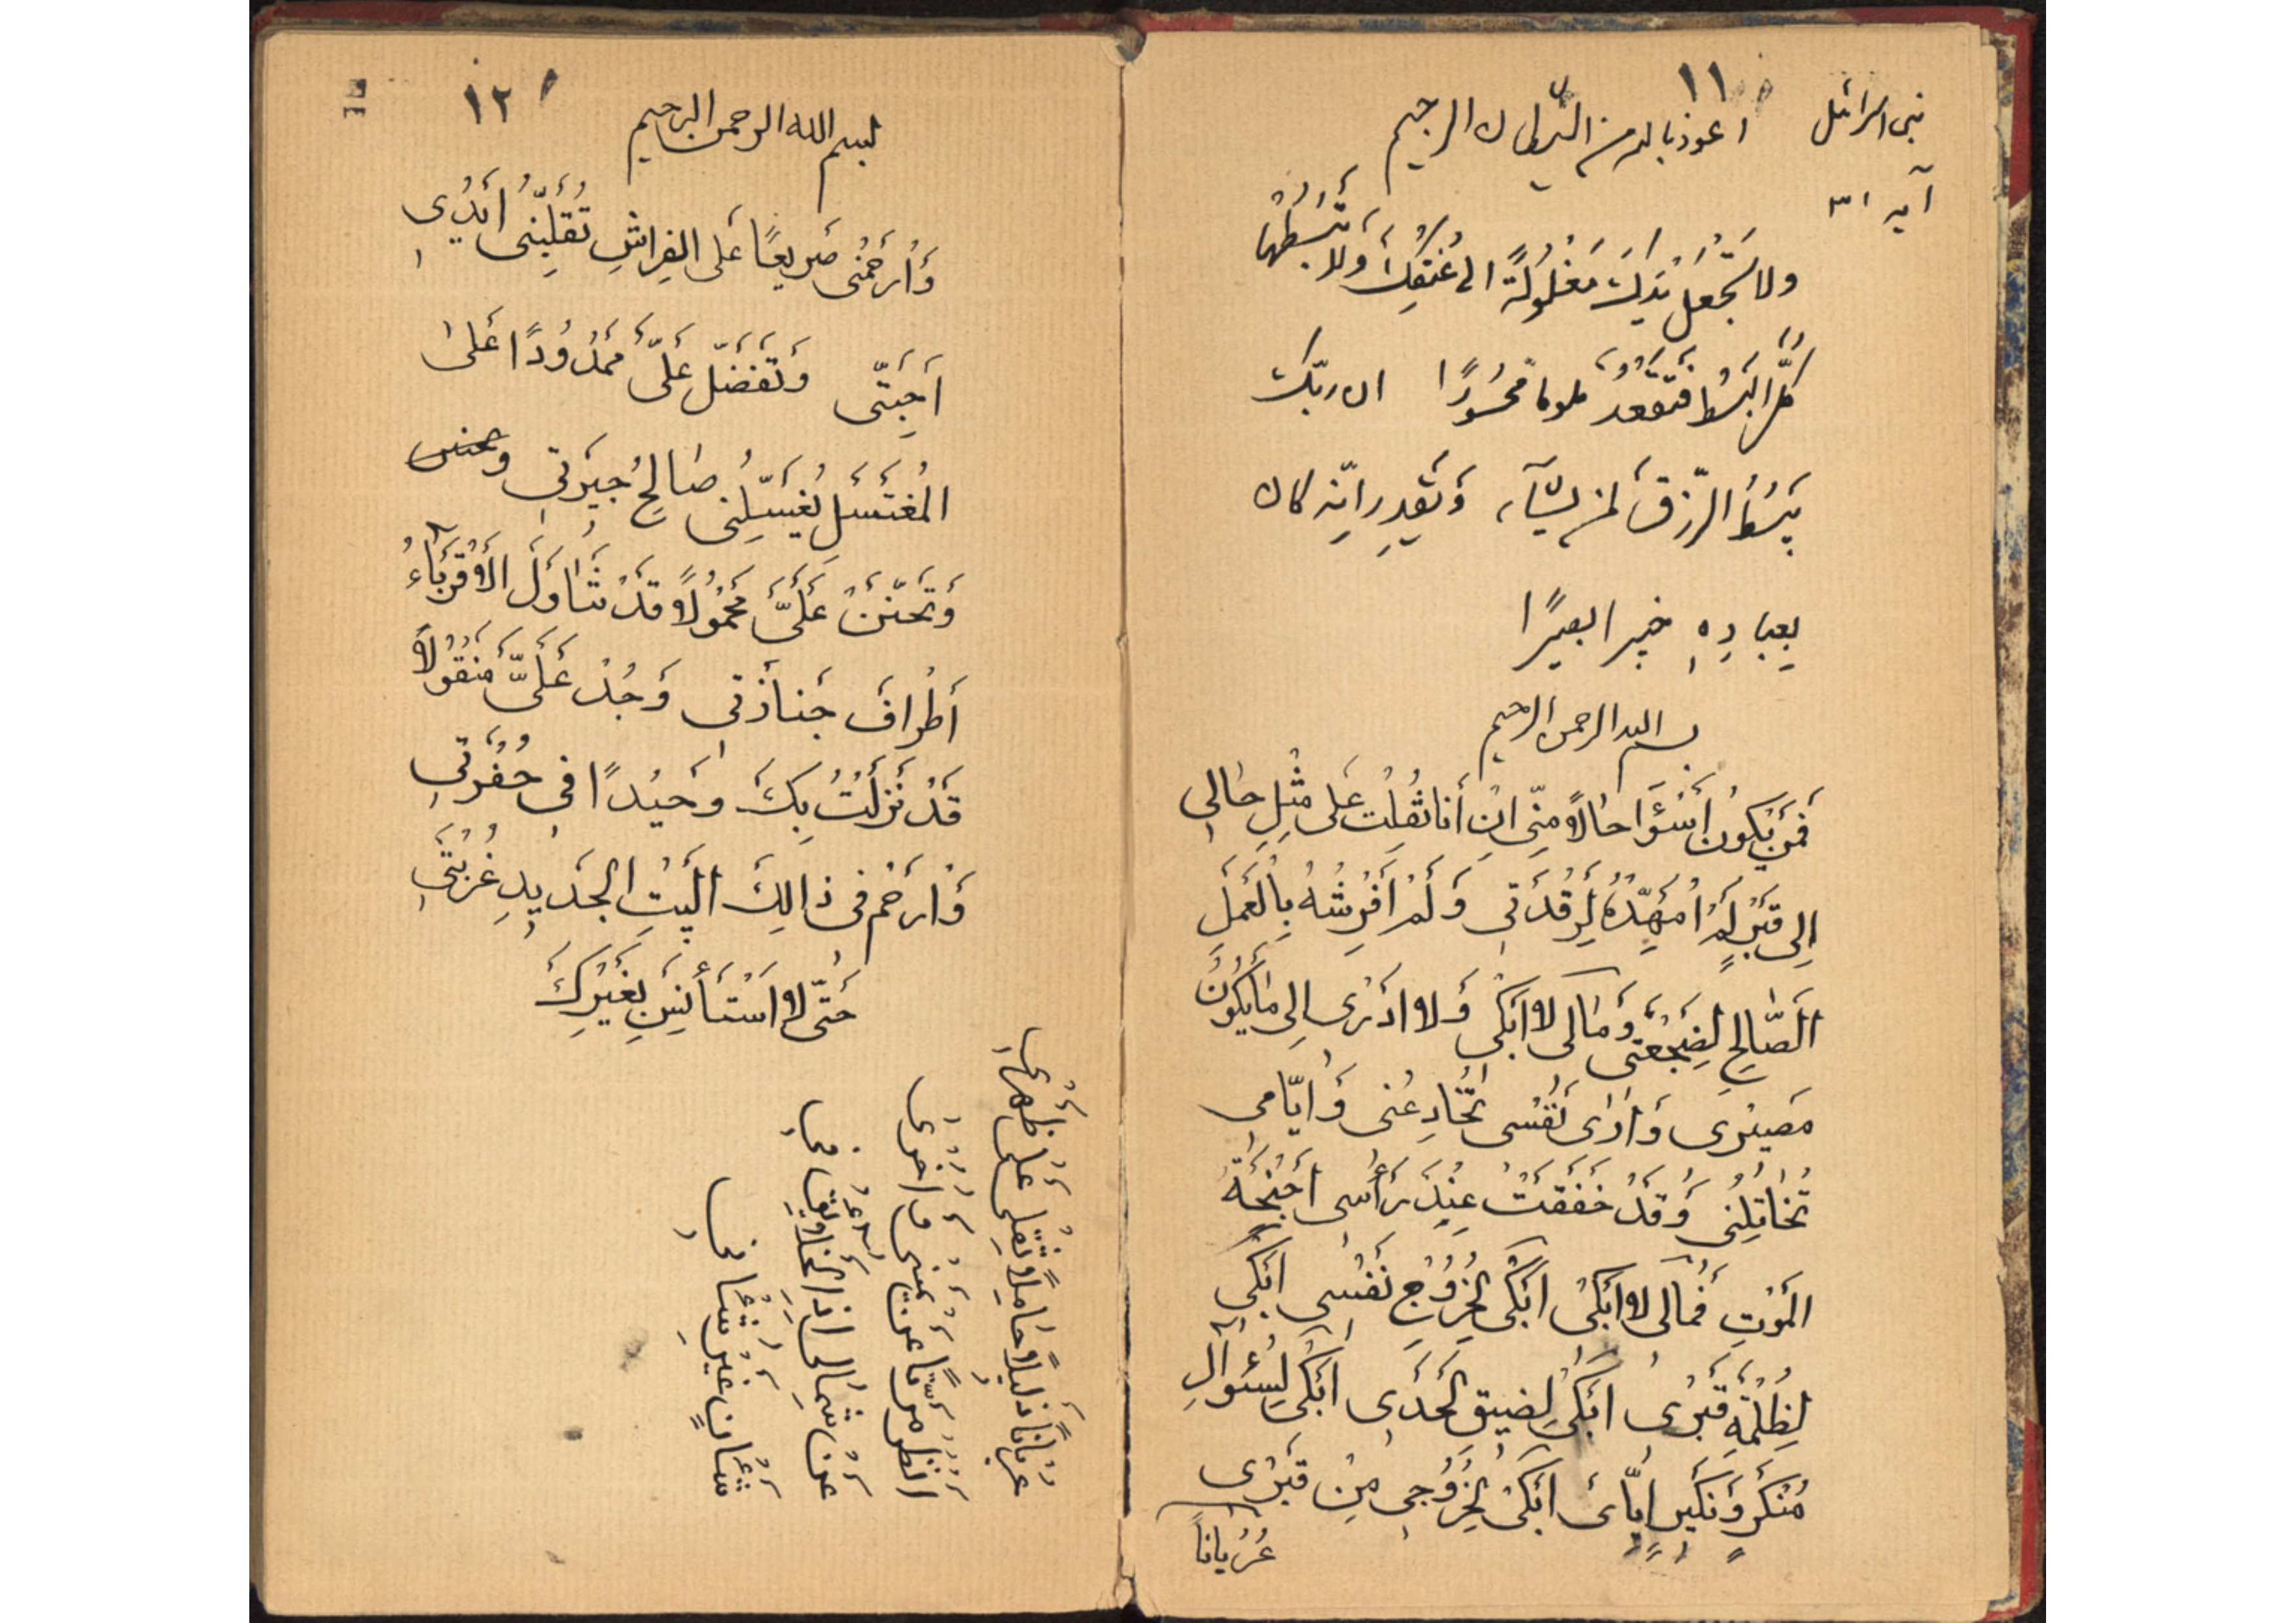 ۱۱
بنی اسرائیل
اعوذ بالله من الشیطان الرجیم
آیه ۳۱
ولا تَجْعَلْ یَدَكَ مَغْلُولَةً الی عُنُقِكَ وَلا تَبْسُطْهَا
كُلَّ الْبَسْطِ فَتَقْعُدَ ملوماً مَحْسُورًا ان ربّك
یَبْسُطُ الرِّزقَ لمن یَشآء وَیَقْدِر انّه كان
بِعِبادِهِ خبیرا بصیرًا
بسم الله الرحمن الرحیم
فَمَنْ یَكُونُ أَسْوَءَ حالاً مِنّی اِنْ أَنا نُقِلْتُ عَلی مِثْلِ حالی
اِلی قَبْرٍ لَمْ اُمَهِّدْهُ لِرَقْدَتی وَ لَمْ اَفْرِشْهُ بِالْعَمَلِ
الصّالِحِ لِضَجْعَتی وَمالی لا اَبْكی وَلا اَدْری اِلی مایَكُونُ
مَصیری وَ اَریٰ نَفْسی تُخَادِعُنی وَ اَیّامی
تُخَاتِلُنی وَقَدْ خَفَقَتْ عِنْدَ رَأْسی اَجْنِحَةُ
المَوْتِ فَمالی لا اَبْكی اَبْكی لِخُرُوجِ نَفْسی اَبْكی
لِظُلْمَةِ قَبْری اَبْكی لِضیقِ لَحَدی اَبْكی لِسُؤالِ
مُنْكَرٍ وَ نَكیرٍ اِیّایَ اَبْكی لِخُرُوجی مِنْ قَبْری
عُرْیاناً
۱۲
بسم الله الرحمن الرحیم
وَارْحَمْنی صَریعًا عَلی الفِراشِ تُقَلِّبُنی اَیْدی
اَحِبَّتی وَتَفَضَّلْ عَلَیَّ مَمْدُودًا عَلیٰ
المُغْتَسَلِ یُغَسِّلُنی صٰالِحُ جیرَتی و
وَتَحَنَّنْ عَلَیَّ مَحْمُولاً قَدْ تَنَاوَلَ الأَقْرِبَاءُ
أَطْرافَ جَنازَتی وَجُدْ عَلَیَّ مَنْقُولاً
قَدْ نَزَلْتُ بِكَ وَحیْدًا فی حُفْرَتی
وَارْحَمْ فی ذالِكَ الْبَیْتِ الجَدیدِ غُرْبَتی
حَتّی لا اَسْتَأْنِسَ بِغَیْرِكَ
عُرْیاناً ذَلیلاً حَامِلاً ثِقْلی عَلی ظَهْری
انظر مرّتاً عن یمینی و اُخْری
عَنْ شِمالی اذ الخَلائِقُ فی
شَأْنٍ غَیْرِ شَأْنی